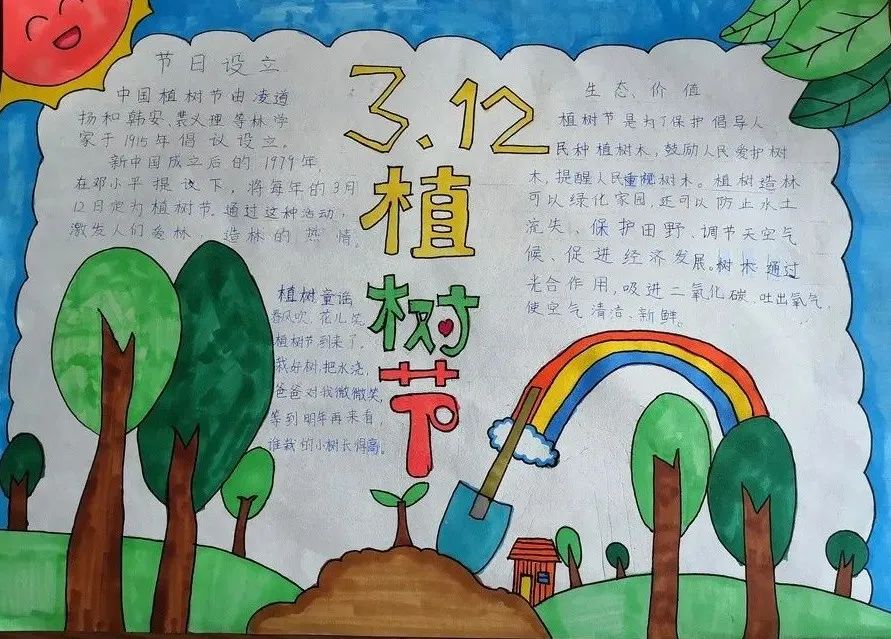 节日设立
中国植树节由凌道
扬和韩安、裴义理等林学
家于1915年倡议设立。
新中国成立后的1979年,
在邓小平提议下,将每年的3月
12日定为植树节。通过这种活动,
激发人们爱林、造林的热情。
3.12
植
树
节
植树童谣
春风吹,花儿笑,
植树节到来了,
我好树,把水浇,
爸爸对我微微笑,
等到明年再来看,
谁栽的小树长得高。
生态、价值
植树节是为了保护倡导人
民种植树木,鼓励人民爱护树
木,提醒人民重视树木。植树造林
可以绿化家园,还可以防止水土
流失、保护田野、调节天空气
候、促进经济发展。树木通过
光合作用,吸进二氧化碳,吐出氧气,
使空气清洁、新鲜。